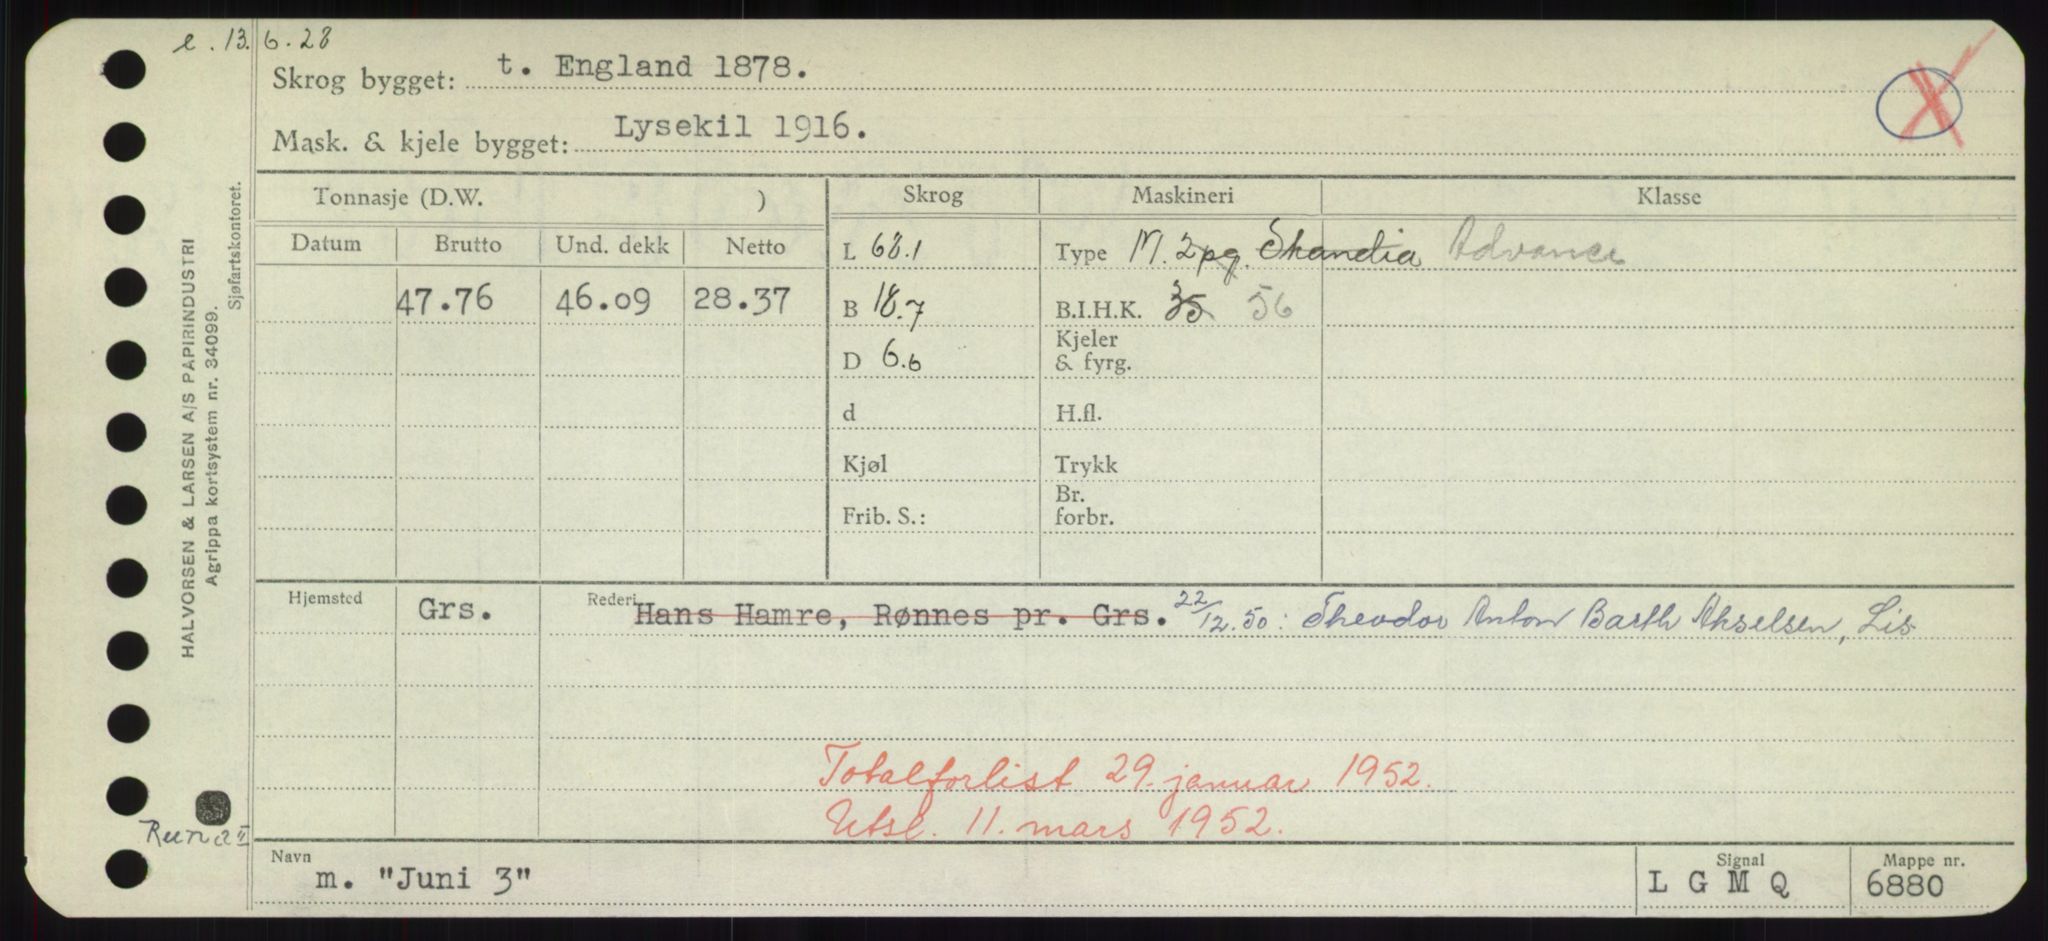 e. 13. 6. 28
Skrog bygget: t. England 1878.
Mask. & kjele bygget: Lysekil 1916.
Tonnasje (D.W. ) Skrog Maskineri Klasse
Datum Brutto Und. dekk Netto L 68.1 Type M. 2pg. Skandia Advance
47.76 46.09 28.37 B 18.7 B.I.H.K. 35 56
D 6.6 Kjeler & fyrg.
d H.fl.
Kjøl Trykk
Frib. S.: Br. forbr.
Hjemsted Grs. Rederi Hans Hamre, Rønnes pr. Grs. 22/12.50: Theodor Anton Barth Akselsen, Lis
Totalforlist 29. januar 1952.
Utsl. 11. mars 1952.
Navn m. "Juni 3" Signal L G M Q Mappe nr. 6880
HALVORSEN & LARSEN A/S PAPIRINDUSTRI
Agrippa kortsystem nr. 34099.
Sjøfartskontoret.
Runa II